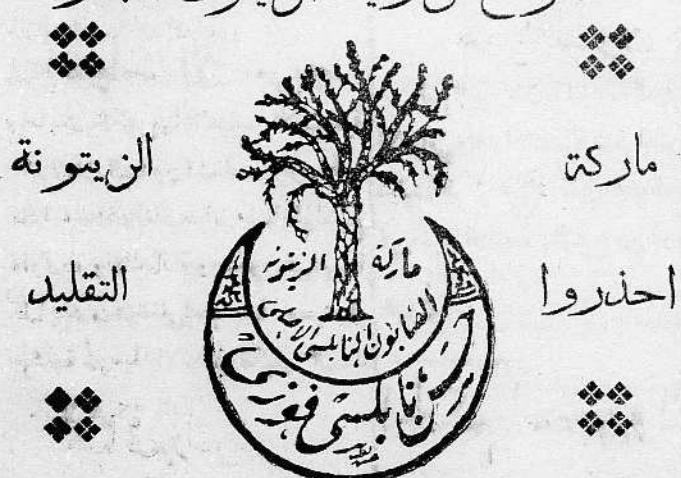 ماركة الزيتونة
احذروا التقليد
ماركة الزيتونه
الصابون النابلسى الاصلى
حسن نابلسى فوزى